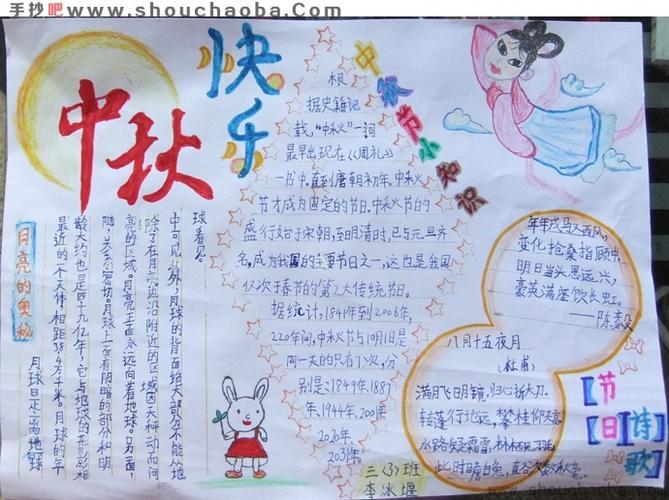 手抄吧
www.shouchaoba.com
中秋
快乐
中秋节小知识
根
据史籍记
载，“中秋”一词
最早出现在《周礼》
一书中。直到唐朝初年，中秋
节才成为固定的节日。中秋节的
盛行始于宋朝，至明清时，已与元旦齐
名，成为我国的主要节日之一，这也是我国
仅次于春节的第2大传统节日。
据统计，1841年到2006年，
220年间，中秋节与10月1日是
同一天的只有
分
别是：1849年1887
年，1944年，200
2020年，
2031年。
月亮的奥秘
月球日是离地球
最近的一个天体，相距38.4万千米。月球的年
龄大约也是四十九亿年，它与地球
关系密切。月球上面有阴暗的部分和明
亮的区域。月亮正面永远向着地球。另面，
除了在月亮边沿附近的区域因天秤动而间
中可见以外，月球的背面绝大部分不能从地
球看见。
年年戎马
西风，
变化
桑指顾中。
明日
恩远
豪英满座饮长
——陈
毅
八月十五夜月
（杜甫）
满月飞明镜，归心折大刀。
转蓬行地远，攀桂仰天高。
水路疑霜雪，林栖见羽毛。
此时瞻白兔，直
数秋毫。
【节日诗歌】
三（3）班
李冰